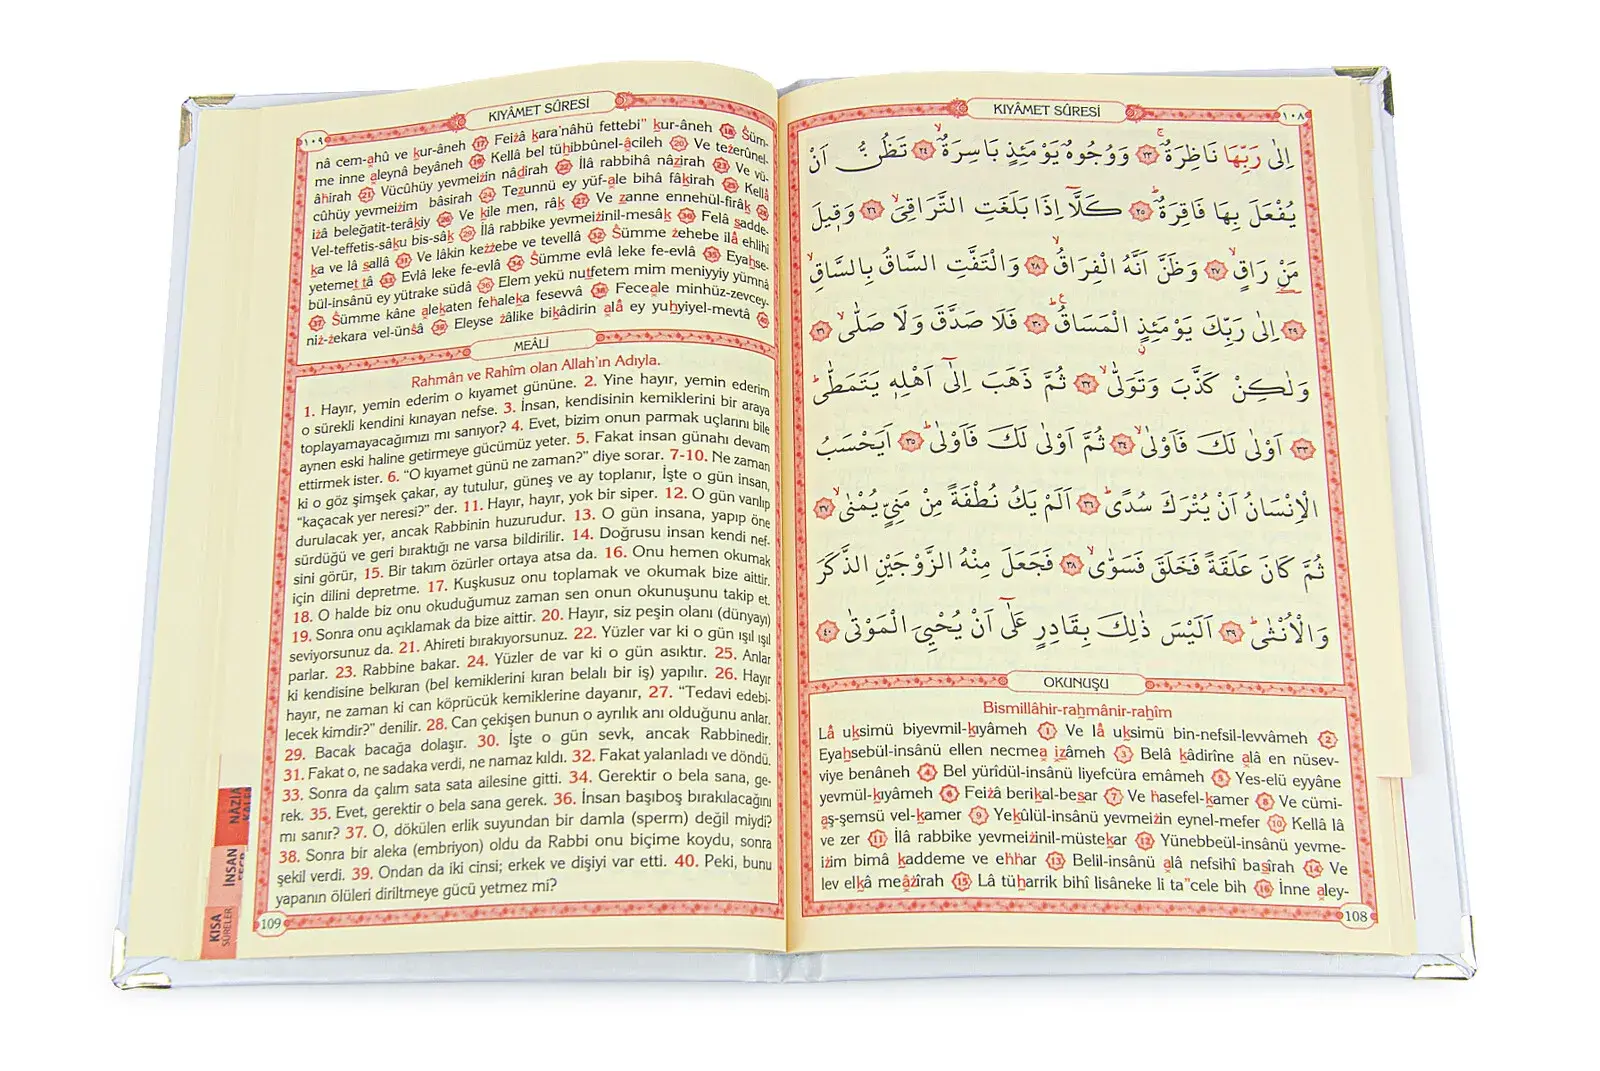 KIYÂMET SÛRESİ
١٠٨
اِلٰى رَبِّهَا نَاظِرَةٌۚ ﴿٢٣﴾ وَوُجُوهٌ يَوْمَئِذٍ بَاسِرَةٌۙ ﴿٢٤﴾ تَظُنُّ اَنْ
يُفْعَلَ بِهَا فَاقِرَةٌۜ ﴿٢٥﴾ كَلَّٓا اِذَا بَلَغَتِ التَّرَاقِيَۙ ﴿٢٦﴾ وَق۪يلَ
مَنْ رَاقٍۙ ﴿٢٧﴾ وَظَنَّ اَنَّهُ الْفِرَاقُۙ ﴿٢٨﴾ وَالْتَفَّتِ السَّاقُ بِالسَّاقِۙ
﴿٢٩﴾ اِلٰى رَبِّكَ يَوْمَئِذٍ الْمَسَاقُۜ ﴿٣٠﴾ فَلَا صَدَّقَ وَلَا صَلّٰىۙ ﴿٣١﴾
وَلٰكِنْ كَذَّبَ وَتَوَلّٰىۙ ﴿٣٢﴾ ثُمَّ ذَهَبَ اِلٰٓى اَهْلِه۪ يَتَمَطّٰىۜ
﴿٣٣﴾ اَوْلٰى لَكَ فَاَوْلٰىۙ ﴿٣٤﴾ ثُمَّ اَوْلٰى لَكَ فَاَوْلٰىۜ ﴿٣٥﴾ اَيَحْسَبُ
الْاِنْسَانُ اَنْ يُتْرَكَ سُدًىۜ ﴿٣٦﴾ اَلَمْ يَكُ نُطْفَةً مِنْ مَنِيٍّ يُمْنٰىۙ ﴿٣٧﴾
ثُمَّ كَانَ عَلَقَةً فَخَلَقَ فَسَوّٰىۙ ﴿٣٨﴾ فَجَعَلَ مِنْهُ الزَّوْجَيْنِ الذَّكَرَ
وَالْاُنْثٰىۜ ﴿٣٩﴾ اَلَيْسَ ذٰلِكَ بِقَادِرٍ عَلٰٓى اَنْ يُحْيِيَ الْمَوْتٰى ﴿٤٠﴾
OKUNUŞU
Bismillâhir-rahmânir-rahîm
Lâ uksimü biyevmil-kıyâmeh 1 Ve lâ uksimü bin-nefsil-levvâmeh 2
Eyahsebül-insânü ellen necmea izâmeh 3 Belâ kâdirîne alâ en nüsev-
viye benâneh 4 Bel yürîdül-insânü liyefcüra emâmeh 5 Yes-elü eyyâne
yevmül-kıyâmeh 6 Feiżâ berikal-besar 7 Ve hasefel-kamer 8 Ve cümi-
aş-şemsü vel-kamer 9 Yekûlül-insânü yevmeiżin eynel-mefer 10 Kellâ lâ
ve zer 11 İlâ rabbike yevmeiżinil-müstekar 12 Yünebbeül-insânü yevme-
iżim bimâ kaddeme ve ehhar 13 Belil-insânü alâ nefsihî basîrah 14 Ve
lev elkâ meâżîrah 15 Lâ tüharrik bihî lisâneke li ta"cele bih 16 İnne aley-
108
KIYÂMET SÛRESİ
١٠٩
nâ cem-ahû ve kur-âneh 17 Feiżâ kara'nâhü fettebi" kur-âneh 18 Ŝüm-
me inne aleynâ beyâneh 19 Kellâ bel tühibbûnel-âcileh 20 Ve teżerûnel-
âhirah 21 Vücûhüy yevmeiżin nâdirah 22 İlâ rabbihâ nâzirah 23 Ve vü-
cûhüy yevmeiżim bâsirah 24 Tezunnü ey yüf-ale bihâ fâkirah 25 Kellâ
iżâ beleğatit-terâkıy 26 Ve kile men, râk 27 Ve zanne ennehül-firâk 28
Vel-teffetis-sâku bis-sâk 29 İlâ rabbike yevmeiżinil-mesâk 30 Felâ sadde-
ka ve lâ sallâ 31 Ve lâkin keżżebe ve tevellâ 32 Ŝümme żehebe ilâ ehlihî
yetemettâ 33 Evlâ leke fe-evlâ 34 Ŝümme evlâ leke fe-evlâ 35 Eyahse-
bül-insânü ey yütrake südâ 36 Elem yekü nutfetem mim meniyyiy yümnâ
37 Ŝümme kâne alekaten fehaleka fesevvâ 38 Feceale minhüz-zevcey-
niż-żekara vel-ünŝâ 39 Eleyse żâlike bikâdirin alâ ey yuhyiyel-mevtâ 40
MEÂLİ
Rahmân ve Rahîm olan Allah'ın Adıyla.
1. Hayır, yemin ederim o kıyamet gününe. 2. Yine hayır, yemin ederim
o sürekli kendini kınayan nefse. 3. İnsan, kendisinin kemiklerini bir araya
toplayamayacağımızı mı sanıyor? 4. Evet, bizim onun parmak uçlarını bile
aynen eski haline getirmeye gücümüz yeter. 5. Fakat insan günahı devam
ettirmek ister. 6. "O kıyamet günü ne zaman?" diye sorar. 7-10. Ne zaman
ki o göz şimşek çakar, ay tutulur, güneş ve ay toplanır, İşte o gün insan,
"kaçacak yer neresi?" der. 11. Hayır, hayır, yok bir siper. 12. O gün vanlıp
durulacak yer, ancak Rabbinin huzurudur. 13. O gün insana, yapıp öne
sürdüğü ve geri bıraktığı ne varsa bildirilir. 14. Doğrusu insan kendi nef-
sini görür, 15. Bir takım özürler ortaya atsa da. 16. Onu hemen okumak
için dilini depretme. 17. Kuşkusuz onu toplamak ve okumak bize aittir.
18. O halde biz onu okuduğumuz zaman sen onun okunuşunu takip et.
19. Sonra onu açıklamak da bize aittir. 20. Hayır, siz peşin olanı (dünyayı)
seviyorsunuz da. 21. Ahireti bırakıyorsunuz. 22. Yüzler var ki o gün ışıl ışıl
parlar. 23. Rabbine bakar. 24. Yüzler de var ki o gün asıktır. 25. Anlar
ki kendisine belkıran (bel kemiklerini kıran belalı bir iş) yapılır. 26. Hayır
hayır, ne zaman ki can köprücük kemiklerine dayanır, 27. "Tedavi edebi-
lecek kimdir?" denilir. 28. Can çekişen bunun o ayrılık anı olduğunu anlar.
29. Bacak bacağa dolaşır. 30. İşte o gün sevk, ancak Rabbinedir.
31. Fakat o, ne sadaka verdi, ne namaz kıldı. 32. Fakat yalanladı ve döndü.
33. Sonra da çalım sata sata ailesine gitti. 34. Gerektir o bela sana, ge-
rek. 35. Evet, gerektir o bela sana gerek. 36. İnsan başıboş bırakılacağını
mı sanır? 37. O, dökülen erlik suyundan bir damla (sperm) değil miydi?
38. Sonra bir aleka (embriyon) oldu da Rabbi onu biçime koydu, sonra
şekil verdi. 39. Ondan da iki cinsi; erkek ve dişiyi var etti. 40. Peki, bunu
yapanın ölüleri diriltmeye gücü yetmez mi?
109
NÂZİA
İNSAN
KISA
SÛRELER